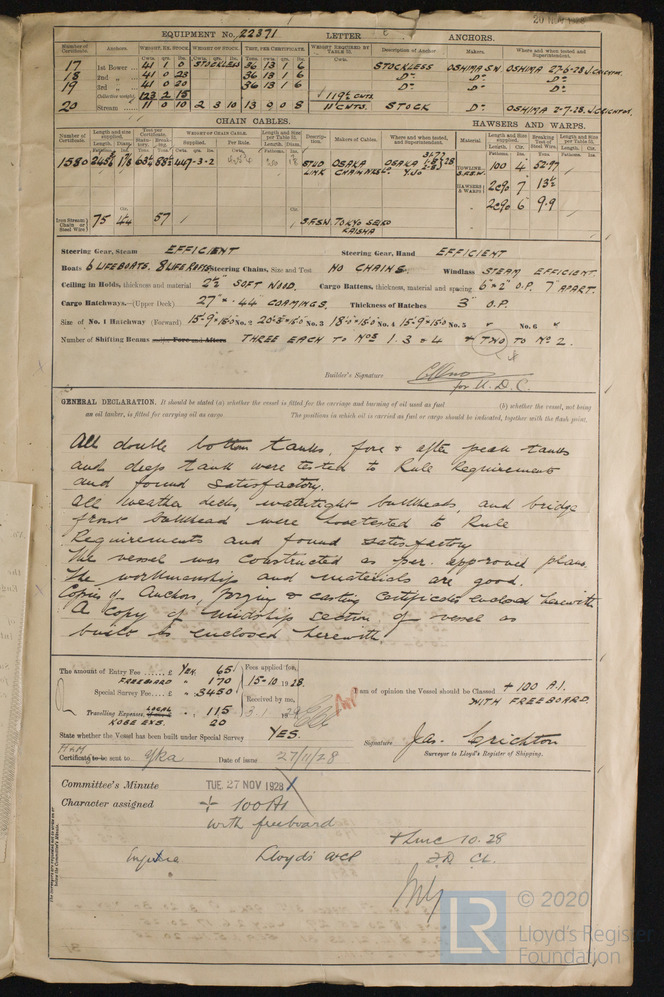 20 NOV 1928
EQUIPMENT No. 22371 LETTER ANCHORS.
Number of Certificate. Anchors. WEIGHT, EX. STOCK. WEIGHT OF STOCK. TEST, PER CERTIFICATE. WEIGHT REQUIRED BY TABLE 31. Description of Anchor. Makers. Where and when tested and Superintendent.
17 1st Bower 41 1 0 STOCKLESS 36 13 1 6 STOCKLESS OSHIMA S.N. OSHIMA 27-6-28 J. CRICHTON.
18 2nd „ 41 0 23 36 13 1 6 Do Do Do
19 3rd „ 41 0 20 36 13 1 6 Do Do Do
Collective weight 123 2 15 119½ CWTS.
20 Stream 11 0 10 2 3 10 13 9 0 8 11 CWTS. STOCK Do OSHIMA 2-7-28. J. CRICHTON.
CHAIN CABLES. HAWSERS AND WARPS.
Number of Certificate. Length and size supplied. Test per Certificate. WEIGHT OF CHAIN CABLE. Length and Size per Table 31. Description. Makers of Cables. Where and when tested, and Superintendent. Material. Length and Size supplied. Breaking Test of Steel Wire. Length and Size per Table 31.
Supplied. Per Rule.
1580 447-3-2 STUD LINK OSAKA CHAIN OSAKA TOWLINE 100 4 52.97
HAWSERS & WARPS 2@90 7 13½
2@90 6 9.9
Iron Stream Chain or Steel Wire 75 4¼ 57 S.F.S.W. TOKYO SEIKO KAISHA
Steering Gear, Steam EFFICIENT Steering Gear, Hand EFFICIENT
Boats 6 LIFEBOATS. 8 LIFE RAFTS Steering Chains, Size and Test NO CHAINS. Windlass STEAM EFFICIENT
Ceiling in Holds, thickness and material 2½" SOFT WOOD. Cargo Battens, thickness, material and spacing 6"×2" O.P. 7" APART.
Cargo Hatchways.—(Upper Deck) 27" - 44" COAMINGS. Thickness of Hatches 3" O.P.
Size of No. 1 Hatchway (Forward) 15-9"×16-0" No. 2 20-3"×16-0" No. 3 18-0"×16-0" No. 4 15-9"×16-0" No. 5 " No. 6 "
Number of Shifting Beams and/or Fore and Afters THREE EACH TO Nos 1. 3 & 4 & TWO TO No 2.
Builder's Signature for U.D.C.
GENERAL DECLARATION. It should be stated (a) whether the vessel is fitted for the carriage and burning of oil used as fuel (b) whether the vessel, not being
an oil tanker, is fitted for carrying oil as cargo The positions in which oil is carried as fuel or cargo should be indicated, together with the flash point.
All double bottom tanks, fore & after peak tanks
and deep tank were tested to Rule Requirements
and found satisfactory.
All weather decks, watertight bulkheads, and bridge
front bulkhead were hosetested to Rule
Requirements and found satisfactory
The vessel was constructed as per. approved plans.
The workmanship and materials are good.
Copies of Anchors, forging & casting Certificates enclosed herewith
A copy of midship section of vessel as
built is enclosed herewith.
The amount of Entry Fee £ YEN. 65 Fees applied for,
FREEBOARD " 170 15-10 1928.
Special Survey Fee £ " 3450 Received by me, I am of opinion the Vessel should be Classed + 100 A.1.
WITH FREEBOARD.
Travelling Expenses, LOCAL " 115
KOBE EXS. 20
State whether the Vessel has been built under Special Survey YES.
Signature Jas. Crichton
Surveyor to Lloyd's Register of Shipping.
Certificate to be sent to Yka Date of issue 27/11/28
Committee's Minute TUE. 27 NOV 1928
Character assigned + 100A1
with freeboard
+ LMC 10.28
Lloyd's WCP F.D. CL.
LR
© 2020
Lloyd's Register
Foundation